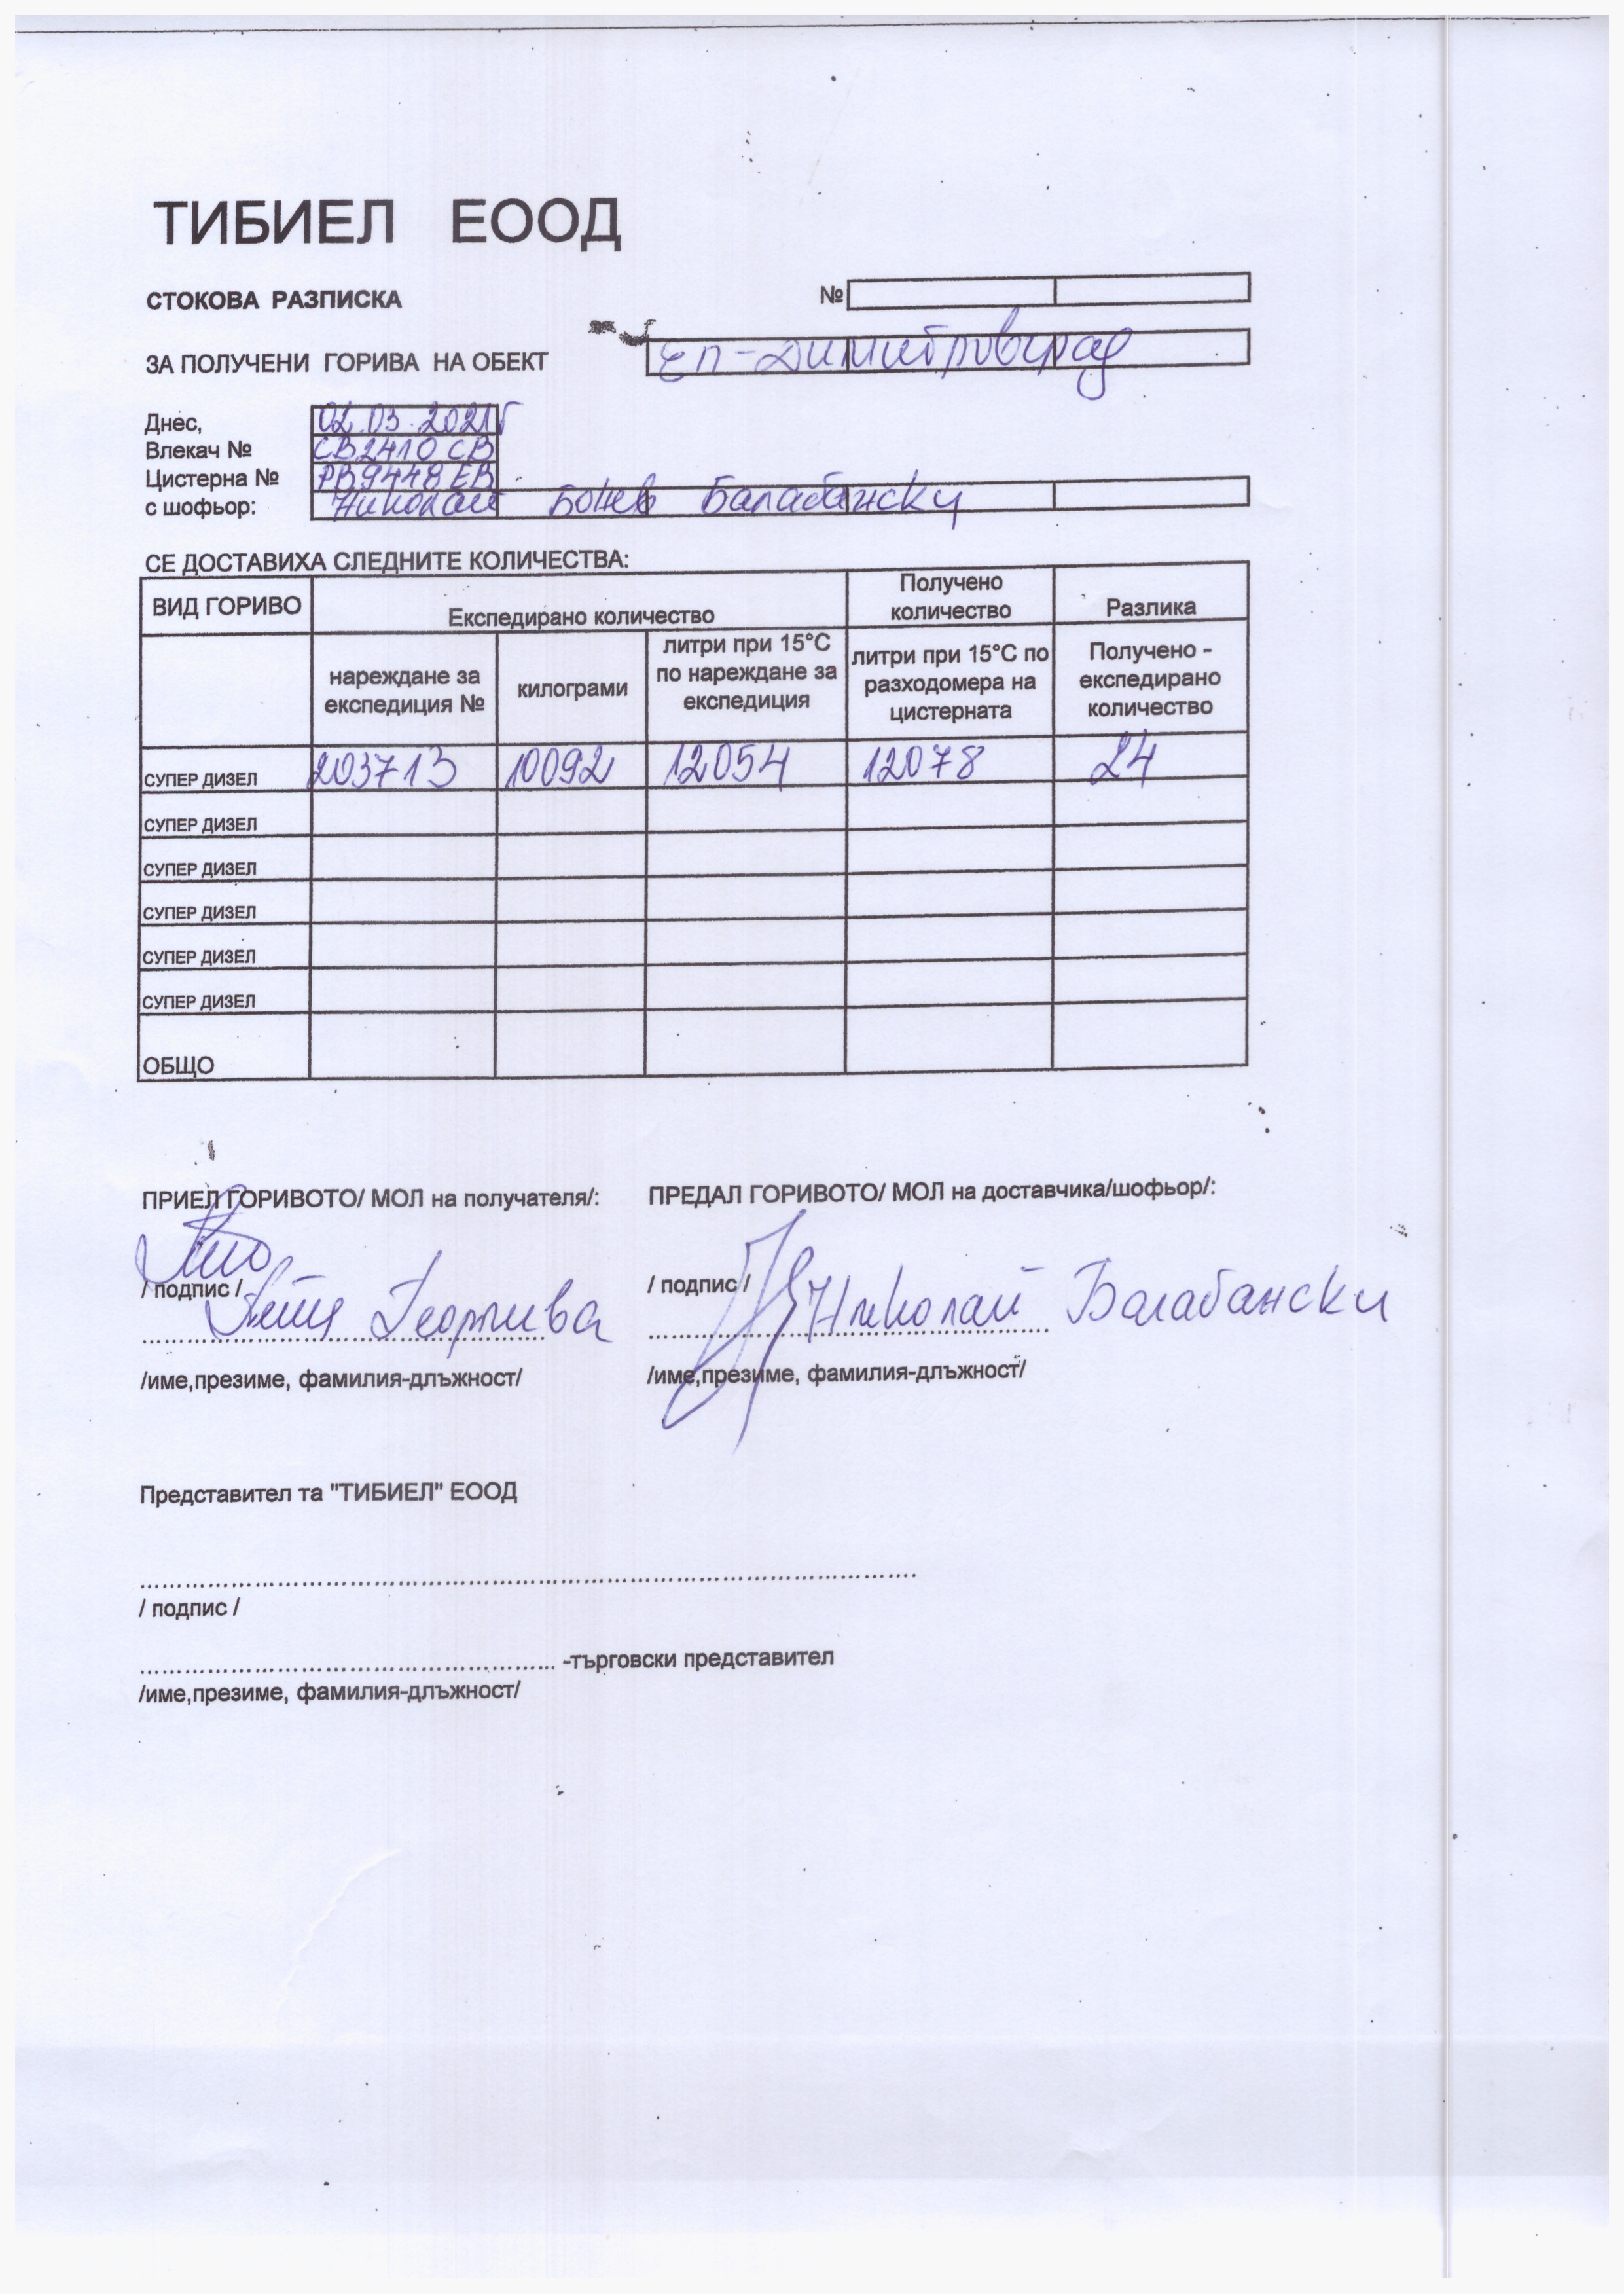 ТИБИЕЛ ЕООД
СТОКОВА РАЗПИСКА №
ЗА ПОЛУЧЕНИ ГОРИВА НА ОБЕКТ ЕП-Димитровград
Днес, 02.03.2021г
Влекач № СВ2410СВ
Цистерна № РВ9448ЕВ
с шофьор: Николай Бонев Балабански
СЕ ДОСТАВИХА СЛЕДНИТЕ КОЛИЧЕСТВА:
ВИД ГОРИВО Експедирано количество Получено количество Разлика
нареждане за експедиция № килограми литри при 15°C по нареждане за експедиция литри при 15°C по разходомера на цистерната Получено - експедирано количество
СУПЕР ДИЗЕЛ 203713 10092 12054 12078 24
СУПЕР ДИЗЕЛ
СУПЕР ДИЗЕЛ
СУПЕР ДИЗЕЛ
СУПЕР ДИЗЕЛ
СУПЕР ДИЗЕЛ
ОБЩО
ПРИЕЛ ГОРИВОТО/ МОЛ на получателя/: ПРЕДАЛ ГОРИВОТО/ МОЛ на доставчика/шофьор/:
/ подпис / / подпис /
Георгиева Николай Балабански
/име,презиме, фамилия-длъжност/ /име,презиме, фамилия-длъжност/
Представител та "ТИБИЕЛ" ЕООД
/ подпис /
-търговски представител
/име,презиме, фамилия-длъжност/